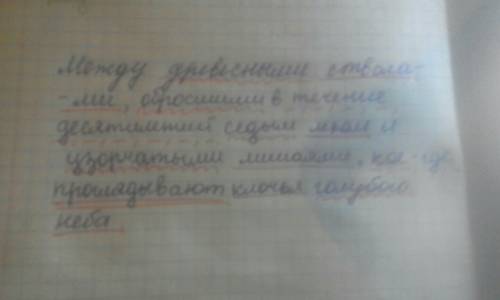 Между древесными ствола-
-ми, обросшими в течение
десятилетий седым мхом и
узорчатыми лишаями, кое-где
проглядывают клочья голубого
неба.